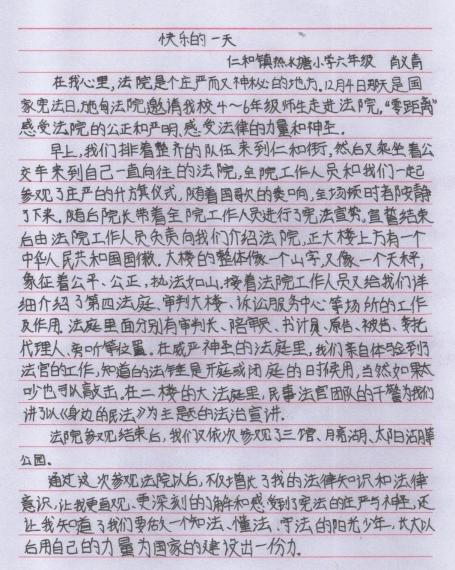 快乐的一天
仁和镇热水塘小学六年级 肖义青
在我心里,法院是个庄严而又神秘的地方。12月4日那天是国
家宪法日,地自法院邀请我校4~6年级师生走进法院,“零距离”
感受法院的公正和严明,感受法律的力量和神圣。
早上,我们排着整齐的队伍来到仁和街,然后又乘坐着公
交车来到自己一直向往的法院,全院工作人员和我们一起
参观了庄严的升旗仪式,随着国歌的奏响,全场顿时者除静
了下来,随后院长带着全院工作人员进行了宪法宣誓,宣誓结束
后由法院工作人员负责向我们介绍法院,正大楼上方有一个
中华人民共和国国徽。大楼的整体像一个山字,又像一个天秤,
象征着公平、公正,执法如山。接着法院工作人员又给我们详
细介绍了第四法庭、审判大楼、诉讼服务中心等场所的工作
及作用。法庭里面分别有审判长、陪审员、书计员、原告、被告、委托
代理人、旁听等位置。在威严神圣的法庭里,我们亲自体验到了
法官的工作,知道的法锤是开庭或闭庭的时候用,当然如果太
吵也可以敲击。在二楼的大法庭里,民事法官团队的干警为我们
讲了以《身边的民法》为主题的法治宣讲。
法院参观结束后,我们又依次参观了三馆、月亮湖、太阳沽膜
公园。
通过这次参观法院以后,不仅增长了我的法律知识和法律
意识,让我更直观、更深刻的了解和感受到了宪法的庄严与神圣,还
让我知道了我们要做一个知法、懂法、守法的阳光少年,长大以
后用自己的力量为国家的建设出一份力。